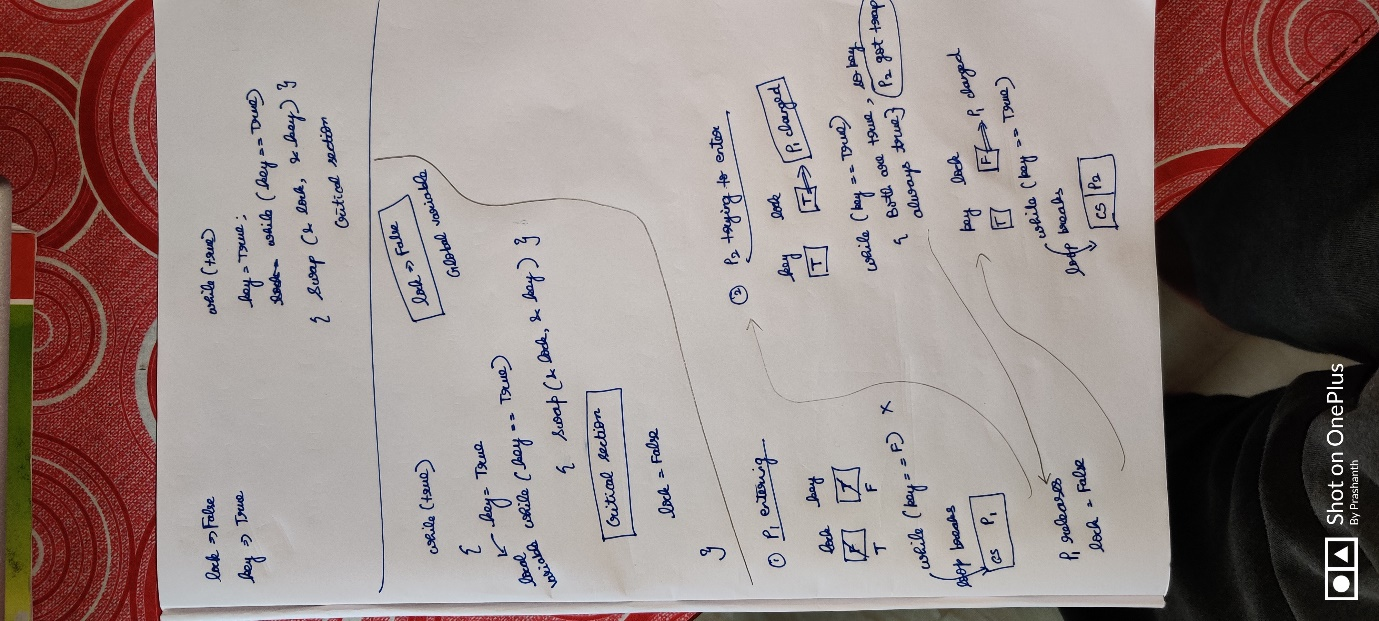 lock ⇒ False
key ⇒ True
while (true)
key = True;
while (key == True)
{ swap (& lock, & key) }
Critical section
lock ⇒ False
Global variable
while (true)
{
key = True
local variable
while (key == True)
{ swap (& lock, & key) }
Critical section
lock = False
}
① P1 entering
lock key
F T
T F
while (key == F) ×
loop breaks
CS P1
P1 releases
lock = False
② P2 trying to enter
key lock
T T ⇒ P1 changed
while (key == True)
{ Both are true, so key
always true}
P2 got trap
key lock
T F ⇒ P1 changed
while (key == True)
loop breaks
CS P2
Shot on OnePlus
By Prashanth